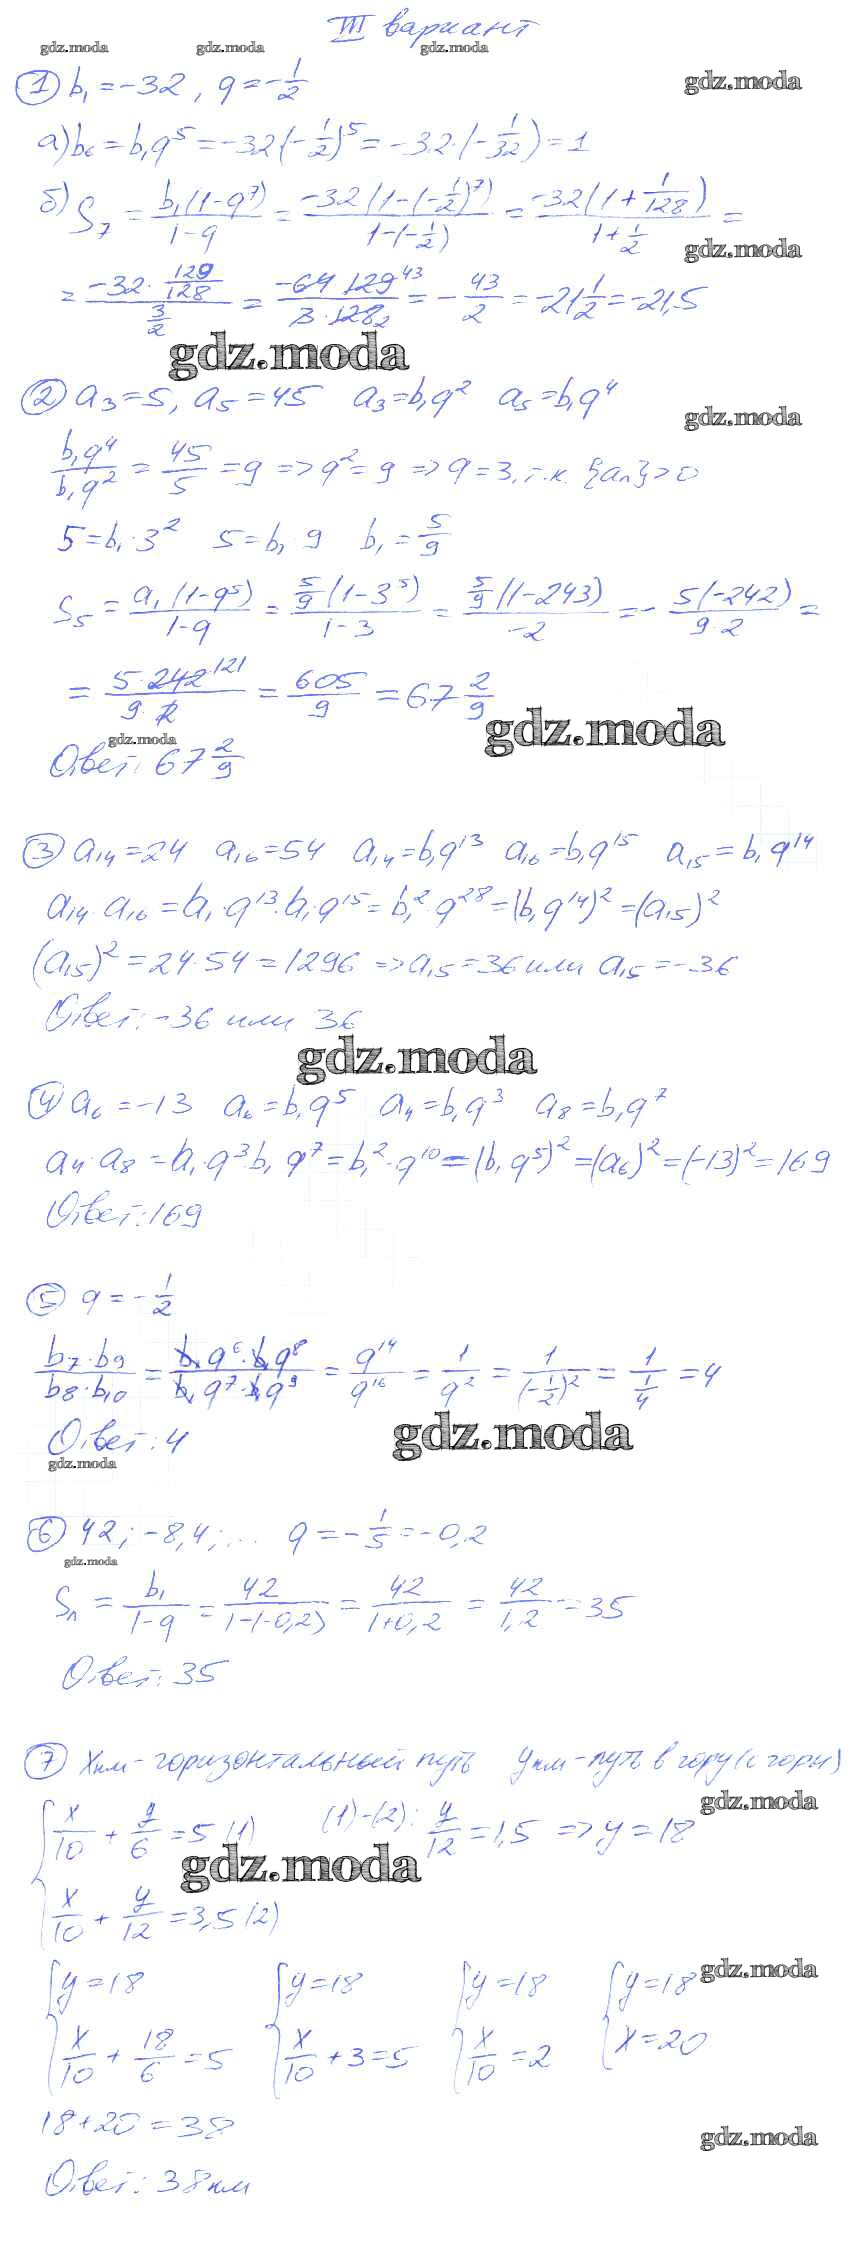 III вариант
gdz.moda gdz.moda gdz.moda
① b₁ = -32, q = -1/2
gdz.moda
а) b₆ = b₁q⁵ = -32(-1/2)⁵ = -32·(-1/32) = 1
б) S₇ = b₁(1-q⁷)/(1-q) = -32(1-(-1/2)⁷)/(1-(-1/2)) = -32(1+1/128)/(1+1/2) =
gdz.moda
= (-32·129/128)/(3/2) = (-64·129⁴³)/(3·128₂) = -43/2 = -21 1/2 = -21,5
gdz.moda
② a₃ = 5, a₅ = 45 a₃ = b₁q² a₅ = b₁q⁴
gdz.moda
b₁q⁴/b₁q² = 45/5 = 9 => q² = 9 => q = 3, т.к. {an} > 0
5 = b₁·3² 5 = b₁·9 b₁ = 5/9
S₅ = a₁(1-q⁵)/(1-q) = 5/9(1-3⁵)/(1-3) = 5/9(1-243)/(-2) = -5(-242)/(9·2) =
= 5·242¹²¹/(9·2) = 605/9 = 67 2/9
gdz.moda
gdz.moda
Ответ: 67 2/9
③ a₁₄ = 24 a₁₆ = 54 a₁₄ = b₁q¹³ a₁₆ = b₁q¹⁵ a₁₅ = b₁q¹⁴
a₁₄·a₁₆ = a₁·q¹³·a₁·q¹⁵ = b₁²·q²⁸ = (b₁q¹⁴)² = (a₁₅)²
(a₁₅)² = 24·54 = 1296 => a₁₅ = 36 или a₁₅ = -36
Ответ: -36 или 36
gdz.moda
④ a₆ = -13 a₆ = b₁q⁵ a₄ = b₁q³ a₈ = b₁q⁷
a₄·a₈ = a₁·q³b₁q⁷ = b₁²·q¹⁰ = (b₁q⁵)² = (a₆)² = (-13)² = 169
Ответ: 169
⑤ q = -1/2
b₇·b₉/b₈·b₁₀ = b₁q⁶·b₁q⁸/b₁q⁷·b₁q⁹ = q¹⁴/q¹⁶ = 1/q² = 1/(-1/2)² = 1/(1/4) = 4
Ответ: 4
gdz.moda
gdz.moda
⑥ 42; -8,4; ... q = -1/5 = -0,2
gdz.moda
Sn = b₁/(1-q) = 42/(1-(-0,2)) = 42/(1+0,2) = 42/1,2 = 35
Ответ: 35
⑦ x км - горизонтальный путь y км - путь в гору (с горы)
gdz.moda
{ x/10 + y/6 = 5 (1) (1)-(2): y/12 = 1,5 => y = 18
gdz.moda
x/10 + y/12 = 3,5 (2)
{ y = 18 { y = 18 { y = 18 { y = 18
gdz.moda
x/10 + 18/6 = 5 x/10 + 3 = 5 x/10 = 2 x = 20
18 + 20 = 38
gdz.moda
Ответ: 38 км